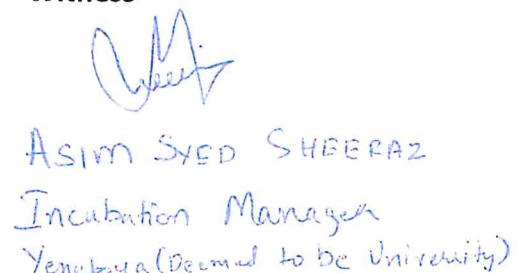 Witness
ASIM SYED SHEERAZ
Incubation Manager
Yenepoya (Deemed to be University)